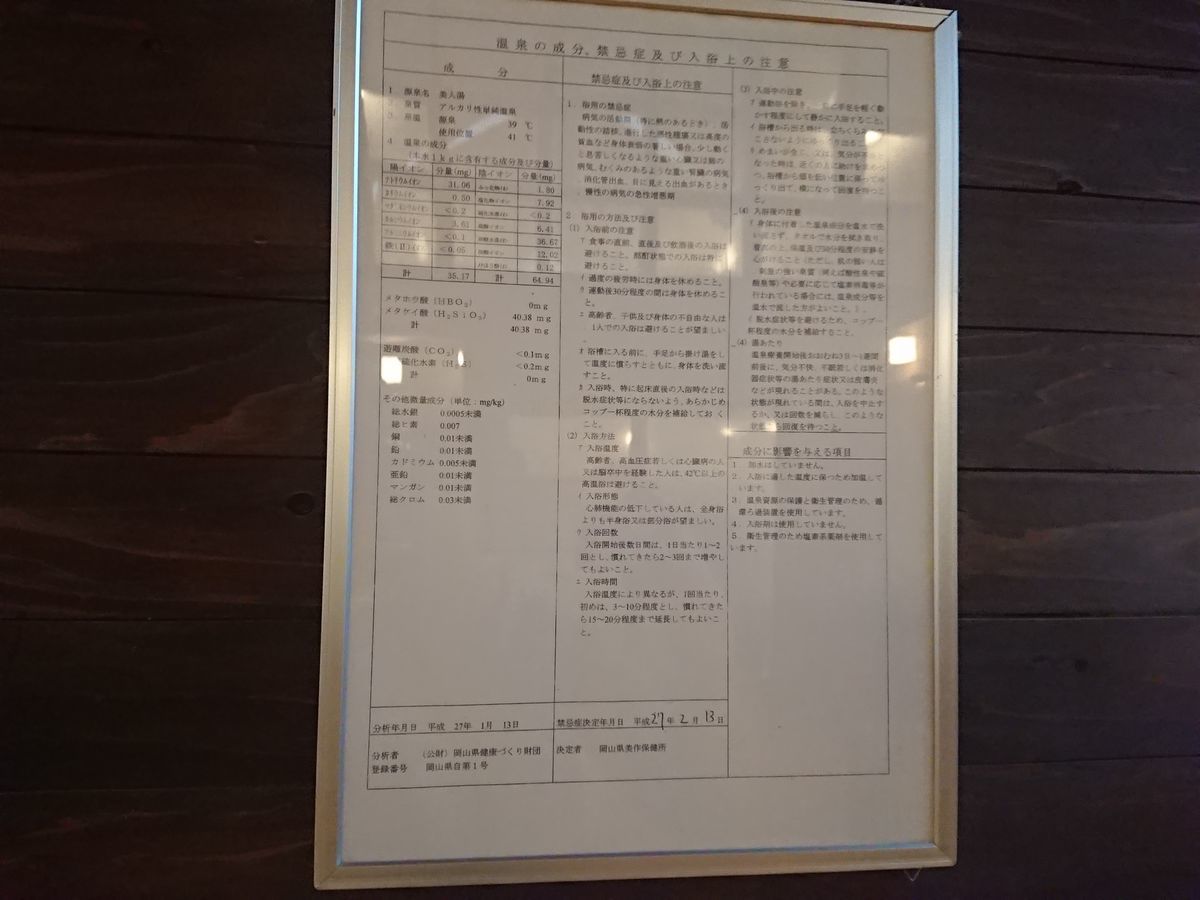 温泉の成分、禁忌症及び入浴上の注意
成　分
1　源泉名　美人湯
2　泉質　アルカリ性単純温泉
3　泉温　源泉　39 ℃
使用位置　41 ℃
4　温泉の成分
(本水1kgに含有する成分及び分量)
陽イオン　分量(mg)　陰イオン　分量(mg)
ナトリウムイオン　31.06　ふっ化物イオン　1.80
カリウムイオン　0.50　塩化物イオン　7.92
マグネシウムイオン　<0.2　<0.2
カルシウムイオン　3.61　硫酸イオン　6.41
アルミニウムイオン　<0.1　36.67
鉄(Ⅱ)イオン　<0.05　炭酸イオン　12.02
0.12
計　35.17　計　64.94
メタホウ酸 (HBO₂)　0mg
メタケイ酸 (H₂SiO₃)　40.38 mg
計　40.38 mg
遊離炭酸 (CO₂)　<0.1mg
硫化水素 (H₂S)　<0.2mg
計　0mg
その他微量成分 (単位：mg/kg)
総水銀　0.0005未満
総ヒ素　0.007
銅　0.01未満
鉛　0.01未満
カドミウム　0.005未満
亜鉛　0.01未満
マンガン　0.01未満
総クロム　0.03未満
分析年月日　平成　27年　1月　13日
分析者　(公財) 岡山県健康づくり財団
登録番号　岡山県自第1号
禁忌症及び入浴上の注意
1　浴用の禁忌症
病気の活動期(特に熱のあるとき)、活
動性の結核、進行した悪性腫瘍又は高度の
貧血など身体衰弱の著しい場合、少し動く
と息苦しくなるような重い心臓又は肺の
病気、むくみのあるような重い腎臓の病気
、消化管出血、目に見える出血があるとき
、慢性の病気の急性増悪期
2　浴用の方法及び注意
(1) 入浴前の注意
ア 食事の直前、直後及び飲酒後の入浴は
避けること。酩酊状態での入浴は特に
避けること。
イ 過度の疲労時には身体を休めること。
ウ 運動後30分程度の間は身体を休めるこ
と。
エ 高齢者、子供及び身体の不自由な人は
1人での入浴は避けることが望ましい
。
オ 浴槽に入る前に、手足から掛け湯をし
て温度に慣らすとともに、身体を洗い流
すこと。
カ 入浴時、特に起床直後の入浴時などは
脱水症状等にならないよう、あらかじめ
コップ一杯程度の水分を補給しておく
こと。
(2) 入浴方法
ア 入浴温度
高齢者、高血圧症若しくは心臓病の人
又は脳卒中を経験した人は、42℃以上の
高温浴は避けること。
イ 入浴形態
心肺機能の低下している人は、全身浴
よりも半身浴又は部分浴が望ましい。
ウ 入浴回数
入浴開始後数日間は、1日当たり1～2
回とし、慣れてきたら2～3回まで増やし
てもよいこと。
エ 入浴時間
入浴温度により異なるが、1回当たり、
初めは、3～10分程度とし、慣れてきた
ら15～20分程度まで延長してもよいこ
と。
禁忌症決定年月日　平成27年 2月 13日
決定者　岡山県美作保健所
(3) 入浴中の注意
ア 運動浴を除き、一般に手足を軽く動
かす程度にして静かに入浴すること。
イ 浴槽から出る時は、立ちくらみを起
こさないようにゆっくり出ること。
ウ めまいが生じ、又は、気分が不良に
なった時は、近くの人に助けを求めつ
つ、浴槽から頭を低い位置に保ってゆ
っくり出て、横になって回復を待つこ
と。
(4) 入浴後の注意
ア 身体に付着した温泉成分を温水で洗
い流さず、タオルで水分を拭き取り、
着衣の上、保温及び30分程度の安静を
心がけること(ただし、肌の弱い人は
刺激の強い泉質(例えば酸性泉や硫
酸泉等)や必要に応じて塩素消毒等が
行われている場合には、温泉成分等を
温水で流した方がよいこと。)。
イ 脱水症状等を避けるため、コップ一
杯程度の水分を補給すること。
(4) 湯あたり
温泉療養開始後おおむね3日～1週間
前後に、気分不快、不眠若しくは消化
器症状等の湯あたり症状又は皮膚炎
などが現れることがある。このような
状態が現れている間は、入浴を中止す
るか、又は回数を減らし、このような
状態から回復を待つこと。
成分に影響を与える項目
1．加水はしていません。
2．入浴に適した温度に保つため加温して
います。
3．温泉資源の保護と衛生管理のため、循
環ろ過装置を使用しています。
4．入浴剤は使用していません。
5．衛生管理のため塩素系薬剤を使用して
います。